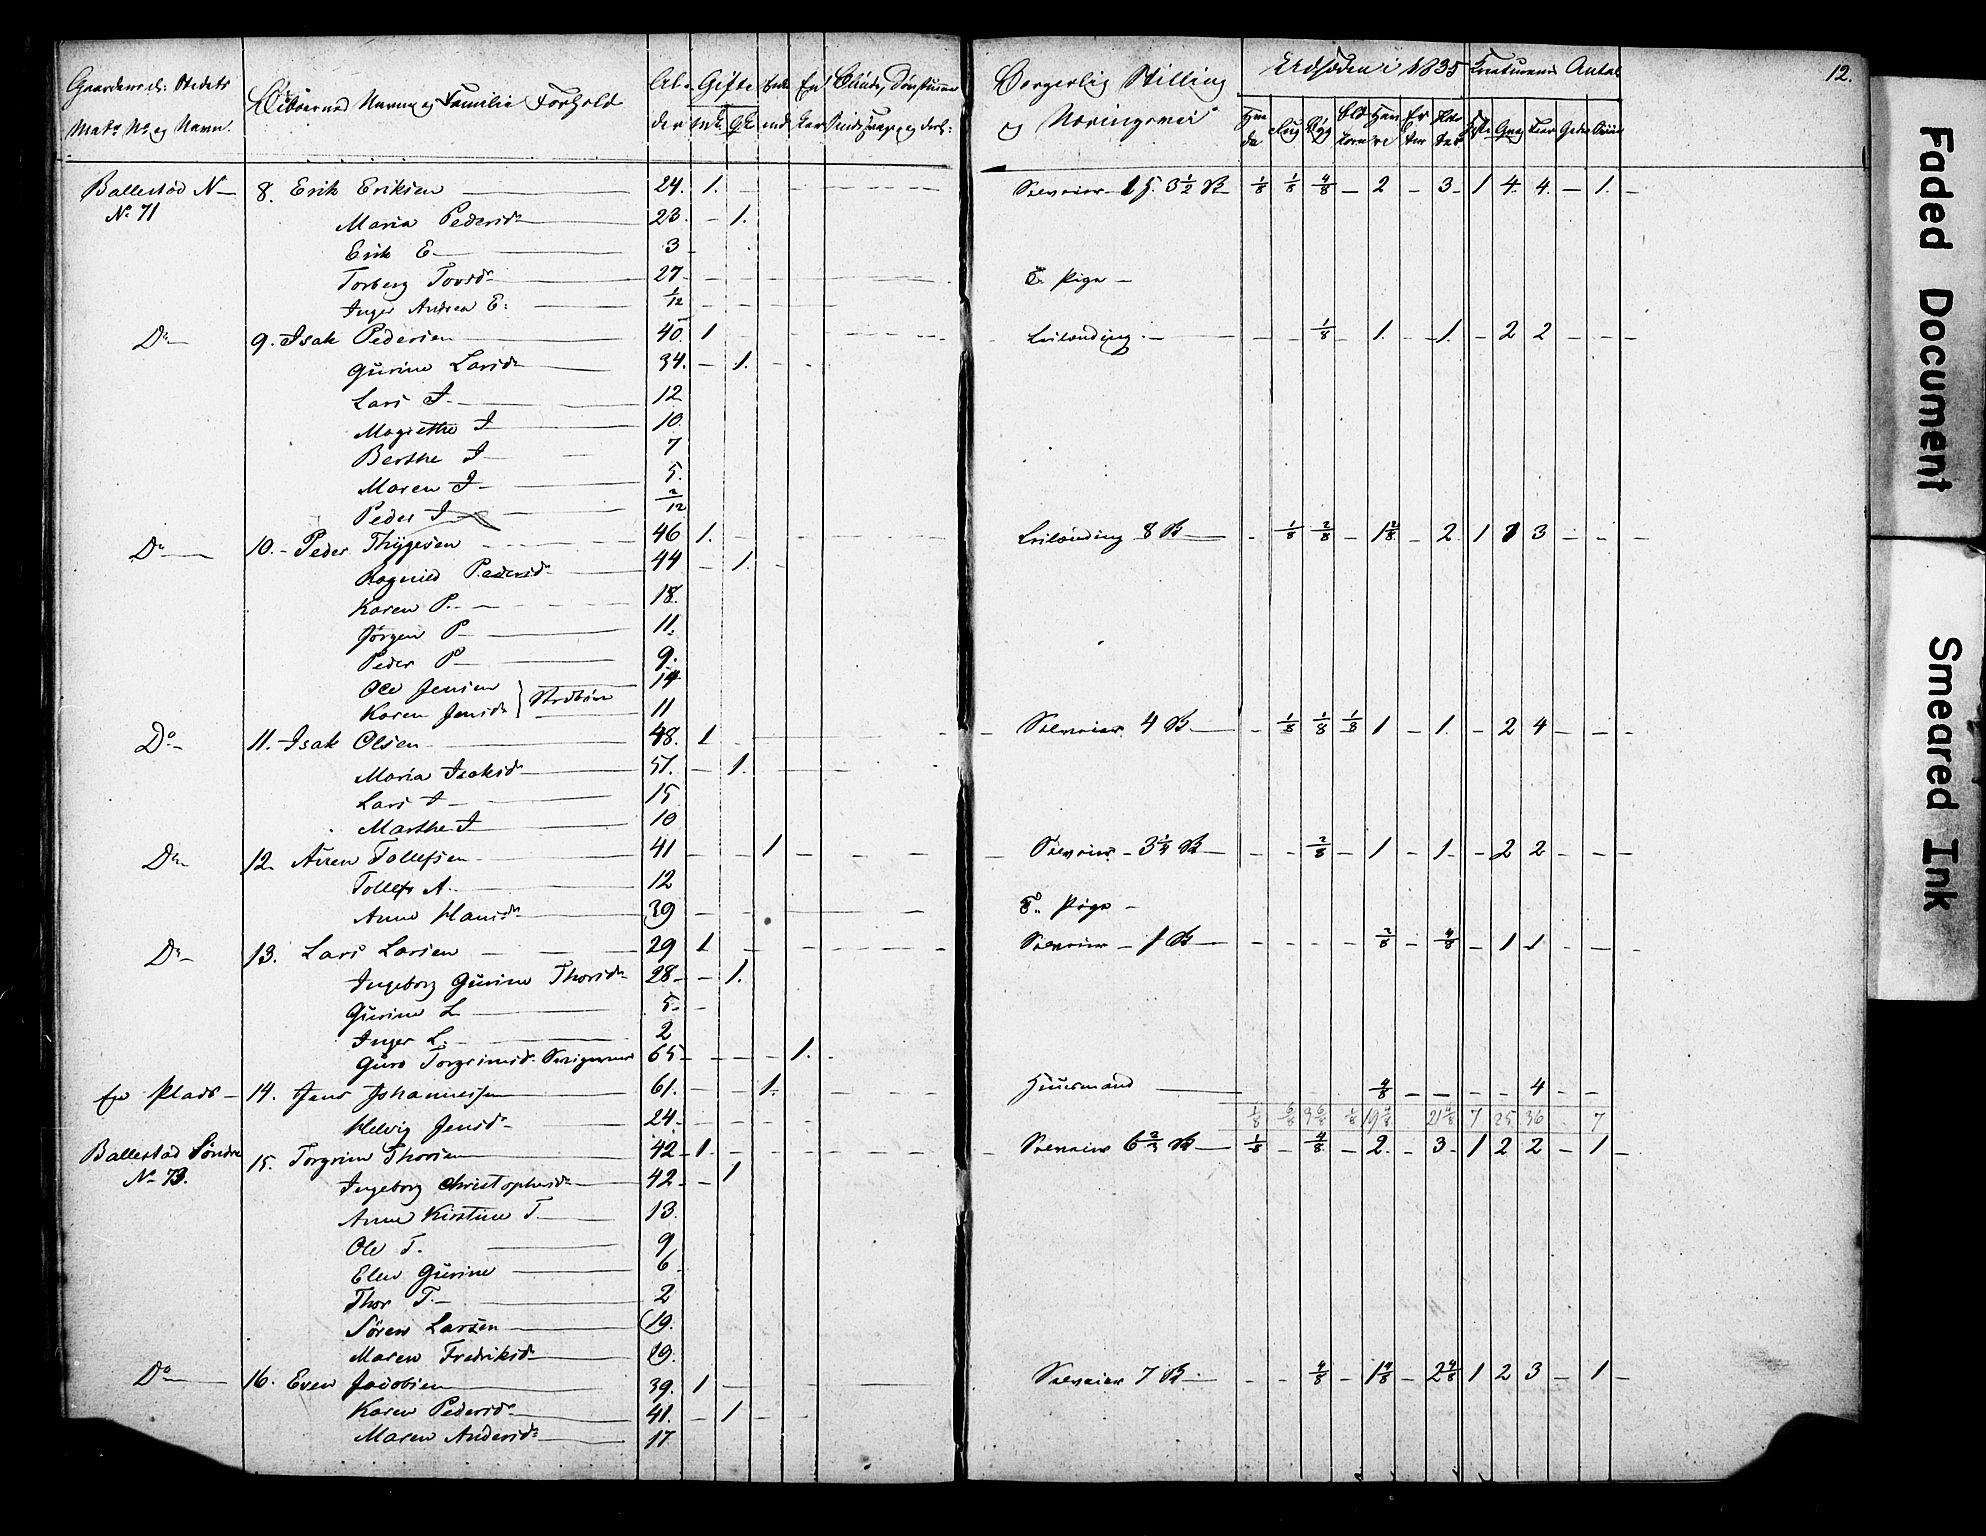 12.
Gaardens el: Stedets Matr No og Navn.
Beboernes Navne og Familie Forhold
Alder Gifte Mk. Qk. Enkemend Enker Blinde, Døvstumme Sindssvage og desl:
Borgerlig Stilling og Næringsvei
Udsæden i 1835 Hvede Rug Byg Havre Kreaturenes Antal Heste Qvæg Faar Geder Sviin
Ballestad N — 8. Erik Eriksen — 24. 1. Selveier 3 1/2 B — 1/8 1/8 4/8 — 2 — 3 1 4. 4. — 1. —
No 71
Maria Pedersd — 23. — 1.
Erik E — 3
Torberg Tovsd — 27 T. Pige —
Inger Andrea E: — 1/12
Do — 9. Isak Pedersen 40. 1 Leilænding. — 1/8 — 1. — 1. — 2 2 —
Gurine Larsd — 34. — 1.
Lars I. — 12
Magrethe I 10
Berthe I — 7
Maren I — 5.
Peder I — 2/12
Do — 10. — Peder Thygesen 46 1. Leilænding 8 B — 1/8 2/8 — 1 2/8 — 2 1 3 —
Ragnild Pedersd — 44 — 1.
Karen P. — 18.
Jørgen P — 11.
Peder P — 9.
Ole Jensen 14
Karen Jensd 11
Do — 11. Isak Olsen — 48. 1 Selveier 4 B — 1/8 1/8 1/8 1 — 1. — 2 4 —
Maria Isaksd — 51. — 1.
Lars I — 15
Marthe I 10
Do — 12. Aven Tollefsen — 41 — — 1 Selveier — 3 1/4 B — 2/8 — 1 — 1 — 2 2 —
Tollef A. — 12
Anne Hansd — 39 T. Pige —
Do — 13. Lars Larsen — 29 1 Selveier — 1 B — 2/8 — 4/8 — 1 1 —
Ingeborg Gurine Thorsd — 28 — 1.
Gurine L — 5.
Inger L. — 2
Guro Torgrimsd 65 — — — 1.
En Plads — 14. Jens Johannessen 61. — — 1. Huusmand — 4/8 — 4 —
Helvig Jensd — 24
1/8 6/8 3 6/8 1/8 19 4/8 21 4/8 7 25 36 7
Ballestad Søndre 15. Torgrim Thorsen 42 — 1 Selveier 6 2/3 B — 1/8 — 4/8 — 2. — 3 1 2 2 — 1
No 73.
Ingeborg Christophersd — 42 — — 1
Anne Kirstine T. — 13.
Ole T. — 9
Elen Gurine — 6
Thor T. — 2
Søren Larsen — 19.
Maren Fredriksd — 19.
Do — 16. Even Jacobsen — 39. 1 Selveier 7 B — 4/8 — 1 4/8 — 2 4/8 1 2 3 — 1 —
Karen Pedersd — 41. — 1
Maren Andersd — 17
Faded Document
Smeared Ink